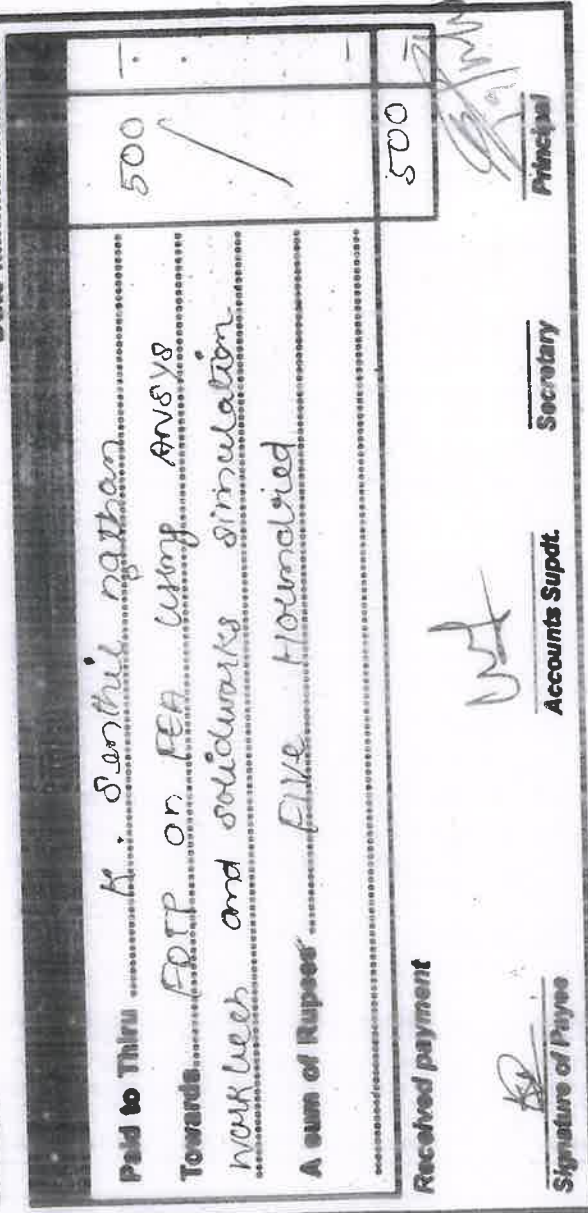 Paid to Thiru K. Senthil nathan 500 -
Towards FDTP on FEA using ANSYS
workbech and solidworks simulation
A sum of Rupees Five Houndried
500 -
Received payment
Signature of Payee Accounts Supdt. Secretary Principal